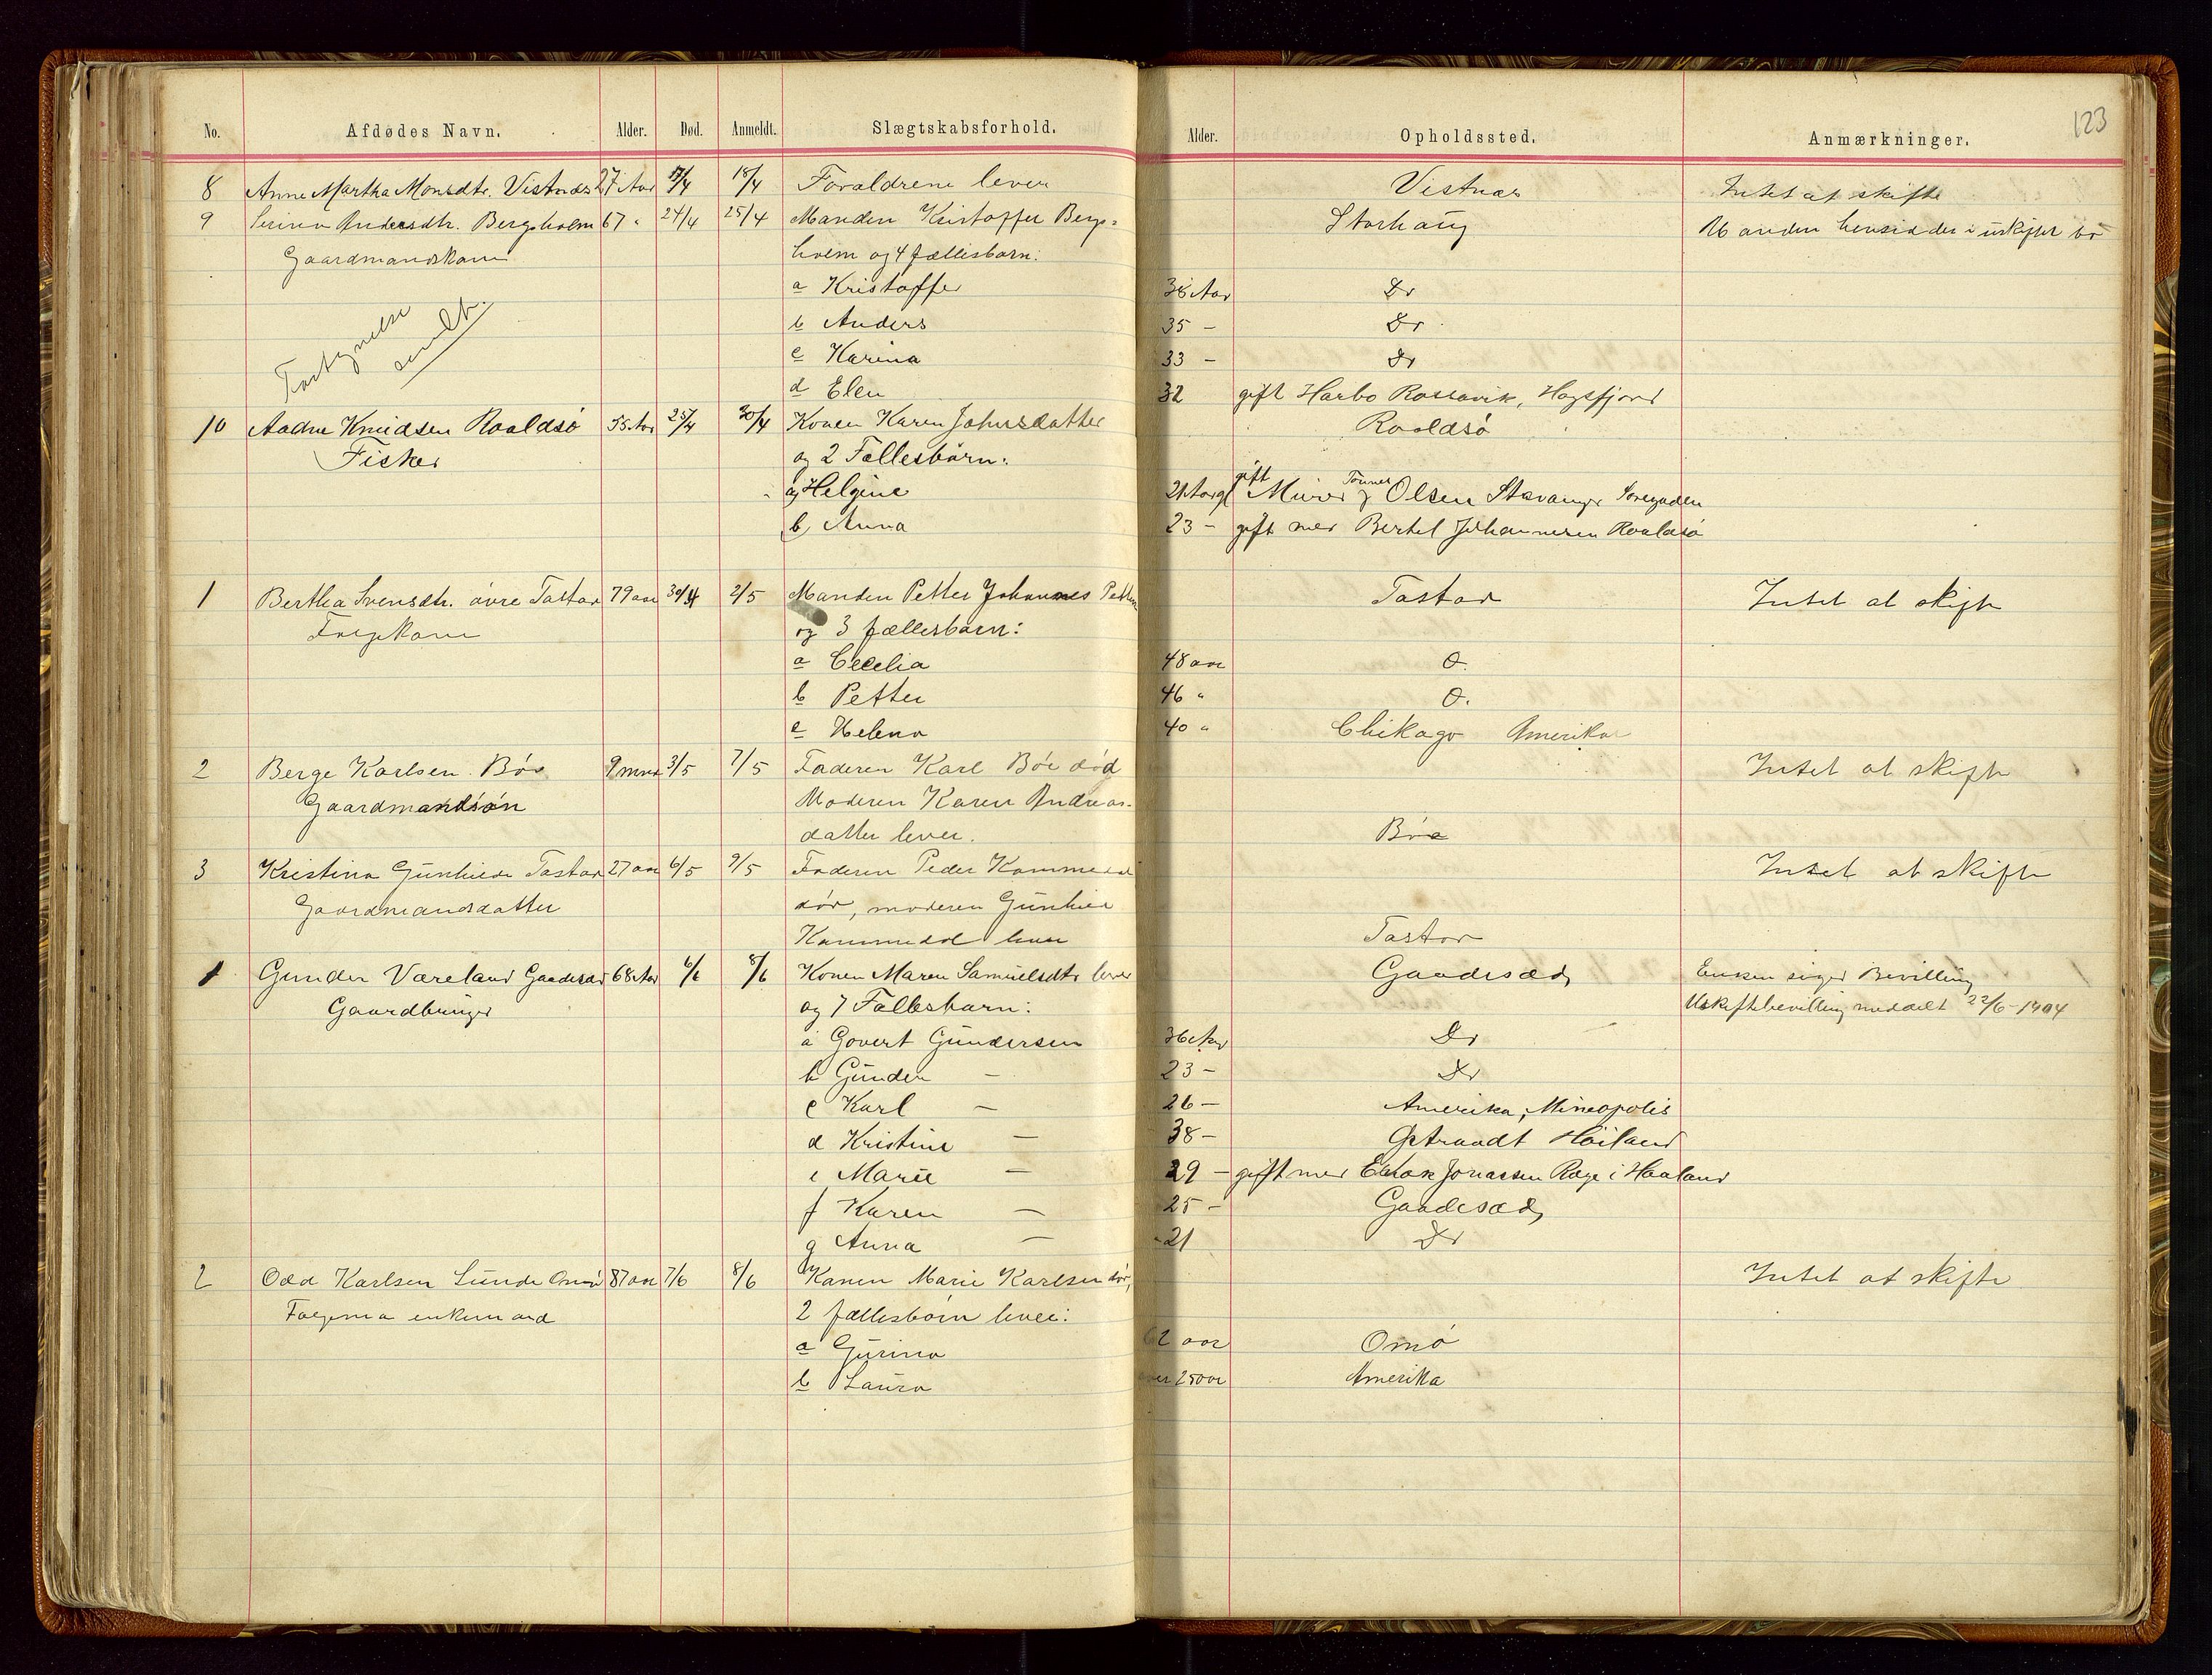 No. Afdødes Navn. Alder. Død. Anmeldt. Slægtskabsforhold. Alder. Opholdssted. Anmærkninger. 123
8 Anne Martha Monsdtr. Vistnæs 27 Aar 17/4 18/4 Forældrene lever Vistnæs Intet at skifte
9 Serina Andersdtr. Bergsholm 67 " 24/4 25/4 Manden Kristoffer Bergs= Storhaug Manden hensidder i uskiftet bo
Gaardmandskone holm og 4 fællesbarn:
a Kristoffer 38 Aar Do
Fortegnelse b Anders 35 - Do
c Karina 33 - Do
d Elen 32 gift Harbo Rossavik, Høgsfjord
10 Aadne Knudsen Roaldsø 55 Aar 25/4 30/4 Konen Karen Johnsdatter Roaldsø
Fisker og 2 Fællesbørn:
a Helgine 21 Aar gift Murer Tønnes Olsen Stavanger
b Anna 23 - gift med Bertel Johannesen Roaldsø
1 Bertha Svensdtr. øvre Tastad 79 aar 30/4 2/5 Manden Petter Johannes Tastad Intet at skifte
Folgekone og 3 fællesbarn:
a Cecelia 48 aar O.
b Petter 46 " O.
c Helena 40 " Chikago Amerika
2 Berge Karlsen Bøe 9 mnd 3/5 7/5 Faderen Karl Bøe død Intet at skifte
Gaardmandsøn Moderen Karen Andreas-
datter lever. Bøe
3 Kristina Gunhilda Tastad 27 aar 6/5 9/5 Faderen Peder Intet at skifte
Gaardmandsdatter død, moderen Gunhild
lever Tastad
1 Gunder Væreland Gaadesæd 68 Aar 6/6 8/6 Konen Maren Samuelsdtr lever Gaadesæd, Enken søger Bevilling
Gaardbruger og 7 Fællesbarn: Uskiftebevilling meddelt 22/6-1904
a Govert Gundersen 36 Aar Do
b Gunder - 23 - Do
c Karl - 26 - Amerika, Mineapolis
d Kristine - 38 - Gstrandt Høiland
e Marie - 29 - gift med Enok Jonassen Rage i Haaland
f Karen - 25 - Gaadesæd,
g Anna - 21 Do
2 Odd Karlsen Lunde Omø 87 aar 7/6 8/6 Konen Marie Karlsen død, Intet at skifte
enkemand 2 fællesbørn lever:
a Gurina 62 aar Omø
b Laura Amerika